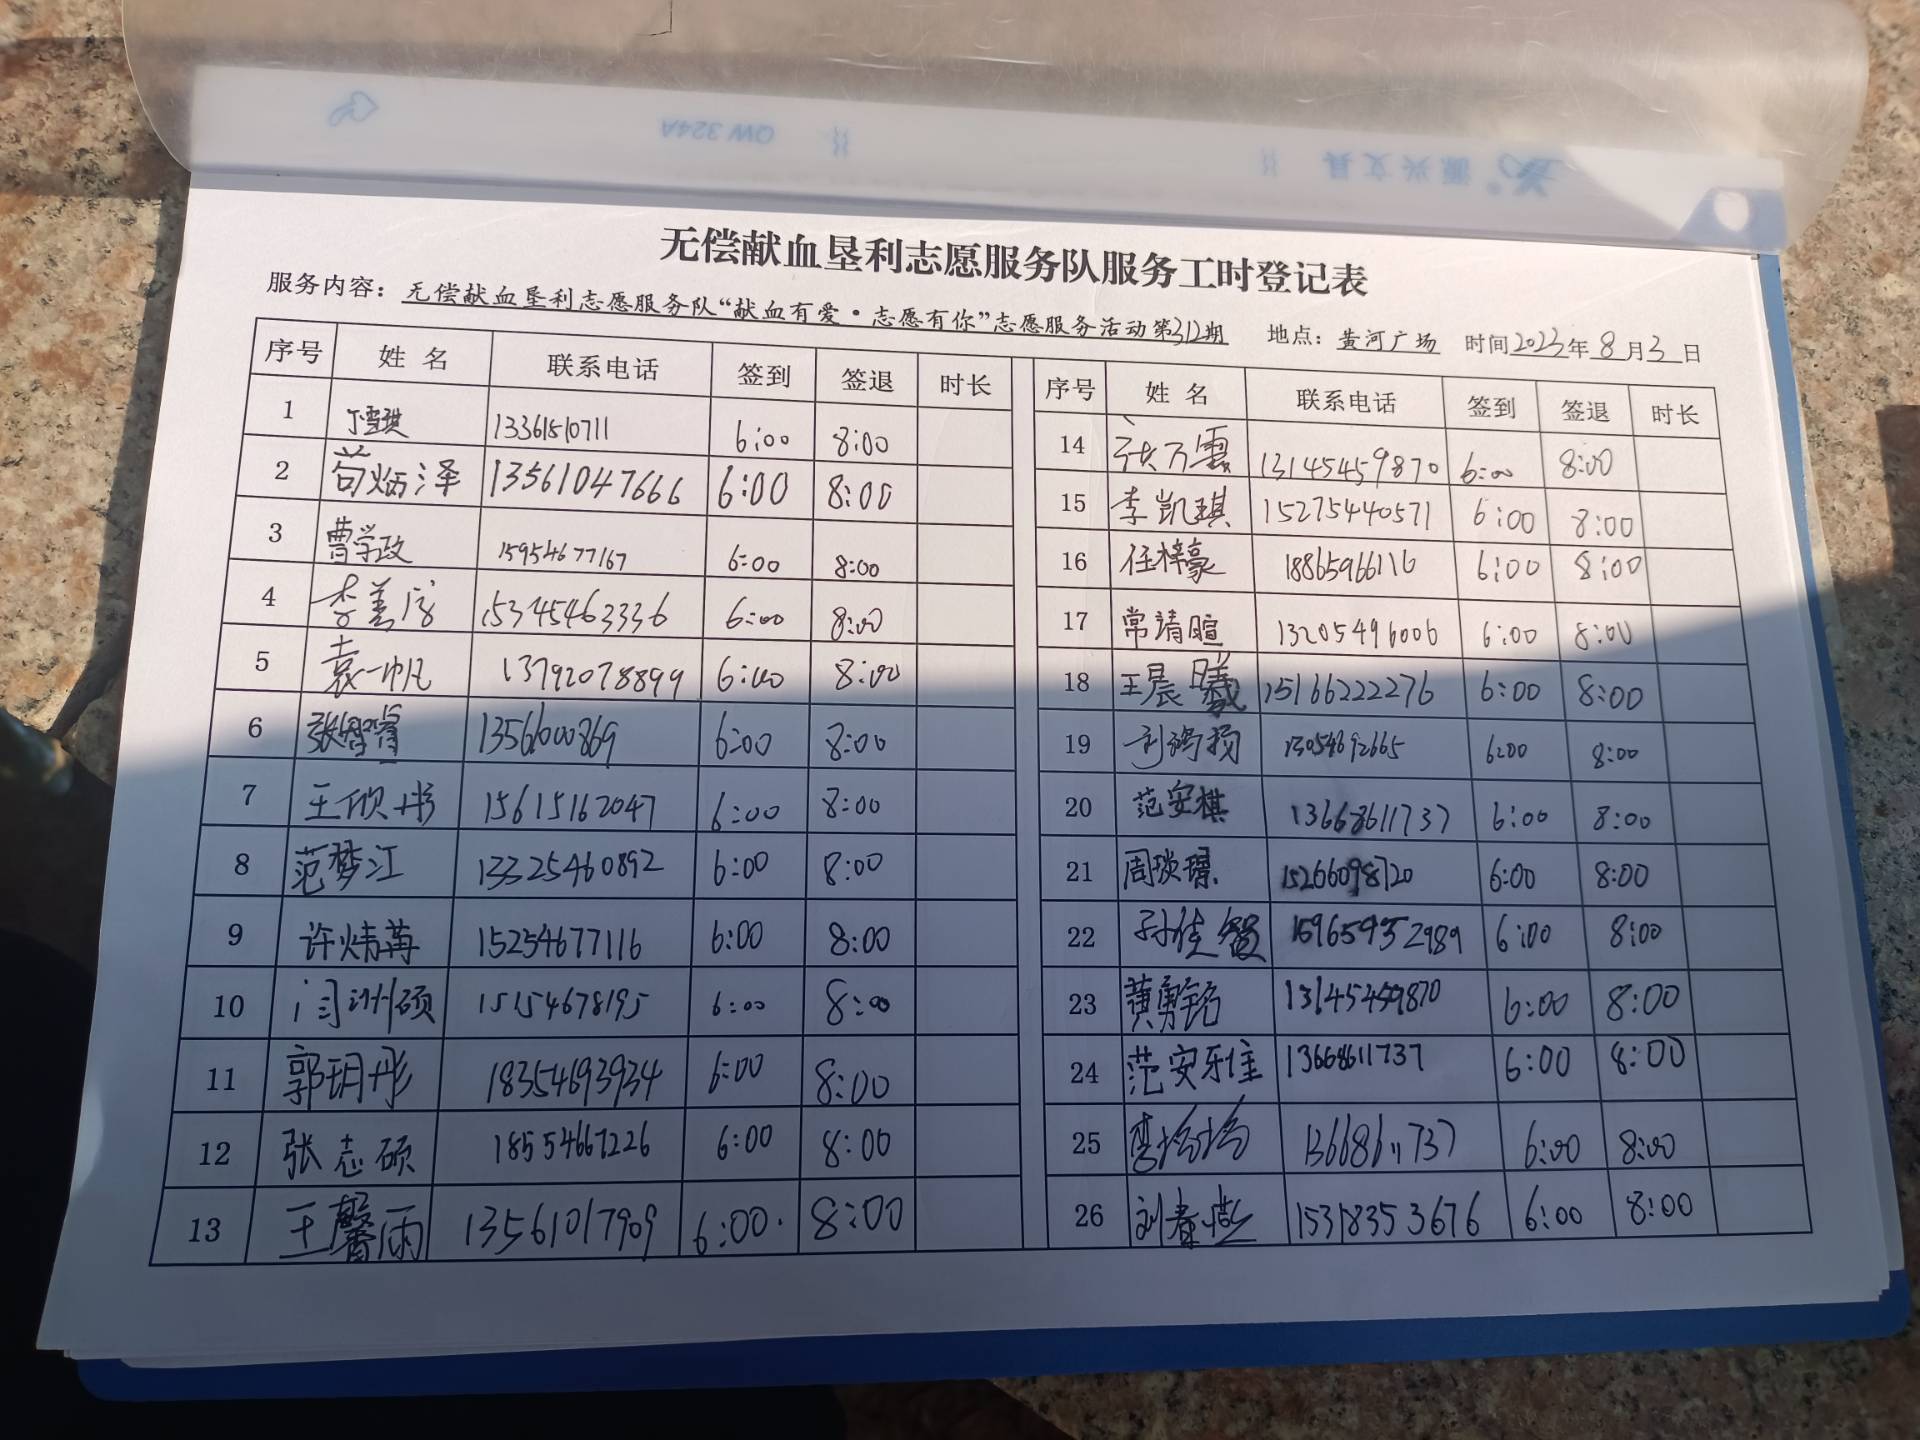 QW 324A
源兴文具
无偿献血垦利志愿服务队服务工时登记表
服务内容：无偿献血垦利志愿服务队“献血有爱·志愿有你”志愿服务活动第312期 地点：黄河广场 时间2023年8月3日
序号 姓名 联系电话 签到 签退 时长 序号 姓名 联系电话 签到 签退 时长
1 丁雪琪 13361510711 6:00 8:00
2 苟炳泽 13561047666 6:00 8:00
3 曹学政 15954677167 6:00 8:00
4 李善 15345463336 6:00 8:00
5 袁一帆 13792078899 6:00 8:00
6 张智睿 13561000869 6:00 8:00
7 王欣彤 15615162047 6:00 8:00
8 范梦江 13325460892 6:00 8:00
9 许 15254677116 6:00 8:00
10 闫 硕 15154678195 6:00 8:00
11 郭玥彤 18354693934 6:00 8:00
12 张志硕 18554667226 6:00 8:00
13 王馨雨 13561017909 6:00 8:00
14 张万 13145459870 6:00 8:00
15 李凯琪 15275440571 6:00 8:00
16 任梓豪 18865966116 6:00 8:00
17 常靖暄 13205496006 6:00 8:00
18 王晨曦 15166222276 6:00 8:00
19 刘 13054692665 6:00 8:00
20 范安棋 13668611737 6:00 8:00
21 周琰璟 15266098720 6:00 8:00
22 孙佳 15965952989 6:00 8:00
23 黄勇铭 13145459870 6:00 8:00
24 范安 13668611737 6:00 8:00
25 李 13668611737 6:00 8:00
26 刘春燕 15318353676 6:00 8:00